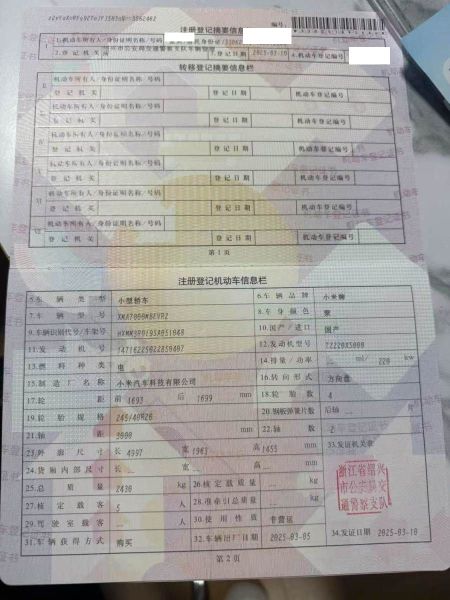 注册登记摘要信息栏
编号:
1.机动车所有人/身份证明名称/号码
2.登记机关
3.登记日期 2025-03-10 4.机动车登记编号
转移登记摘要信息栏
机动车所有人/身份证明名称/号码
登记机关 登记日期 机动车登记编号
机动车所有人/身份证明名称/号码
登记机关 登记日期 机动车登记编号
机动车所有人/身份证明名称/号码
登记机关 登记日期 机动车登记编号
机动车所有人/身份证明名称/号码
登记机关 登记日期 机动车登记编号
机动车所有人/身份证明名称/号码
登记机关 登记日期 机动车登记编号
机动车所有人/身份证明名称/号码
登记机关 登记日期 机动车登记编号
第1页
注册登记机动车信息栏
5.车辆类型 小型轿车 6.车辆品牌 小米牌
7.车辆型号 8.车身颜色 紫
9.车辆识别代号/车架号 10.国产/进口 国产
11.发动机号 12.发动机型号 TZ220XS000
13.燃料种类 电 14.排量/功率 ml/ 220 kw
15.制造厂名称 小米汽车科技有限公司 16.转向形式 方向盘
17.轮距 前 1693 后 1699 mm 18.轮胎数 4
19.轮胎规格 245/40R20 20.钢板弹簧片数 后轴
21.轴距 3000 mm 22.轴数 2
23.外廓尺寸 长 4997 宽 1963 高 1455 mm 33.发证机关章
24.货厢内部尺寸 长 宽 高 mm
25.总质量 2430 kg 26.核定载质量 kg
27.核定载客 5 人 28.准牵引总质量 kg
29.驾驶室载客 人 30.使用性质 非营运
31.车辆获得方式 购买 32.车辆出厂日期 2025-03-05 34.发证日期 2025-03-10
浙江省绍兴
市公安局交
通警察支队
第2页